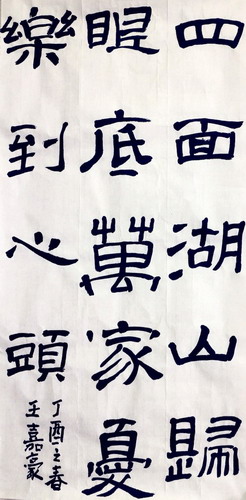 四面湖山歸
眼底萬家憂
樂到心頭
丁酉之春
王嘉豪